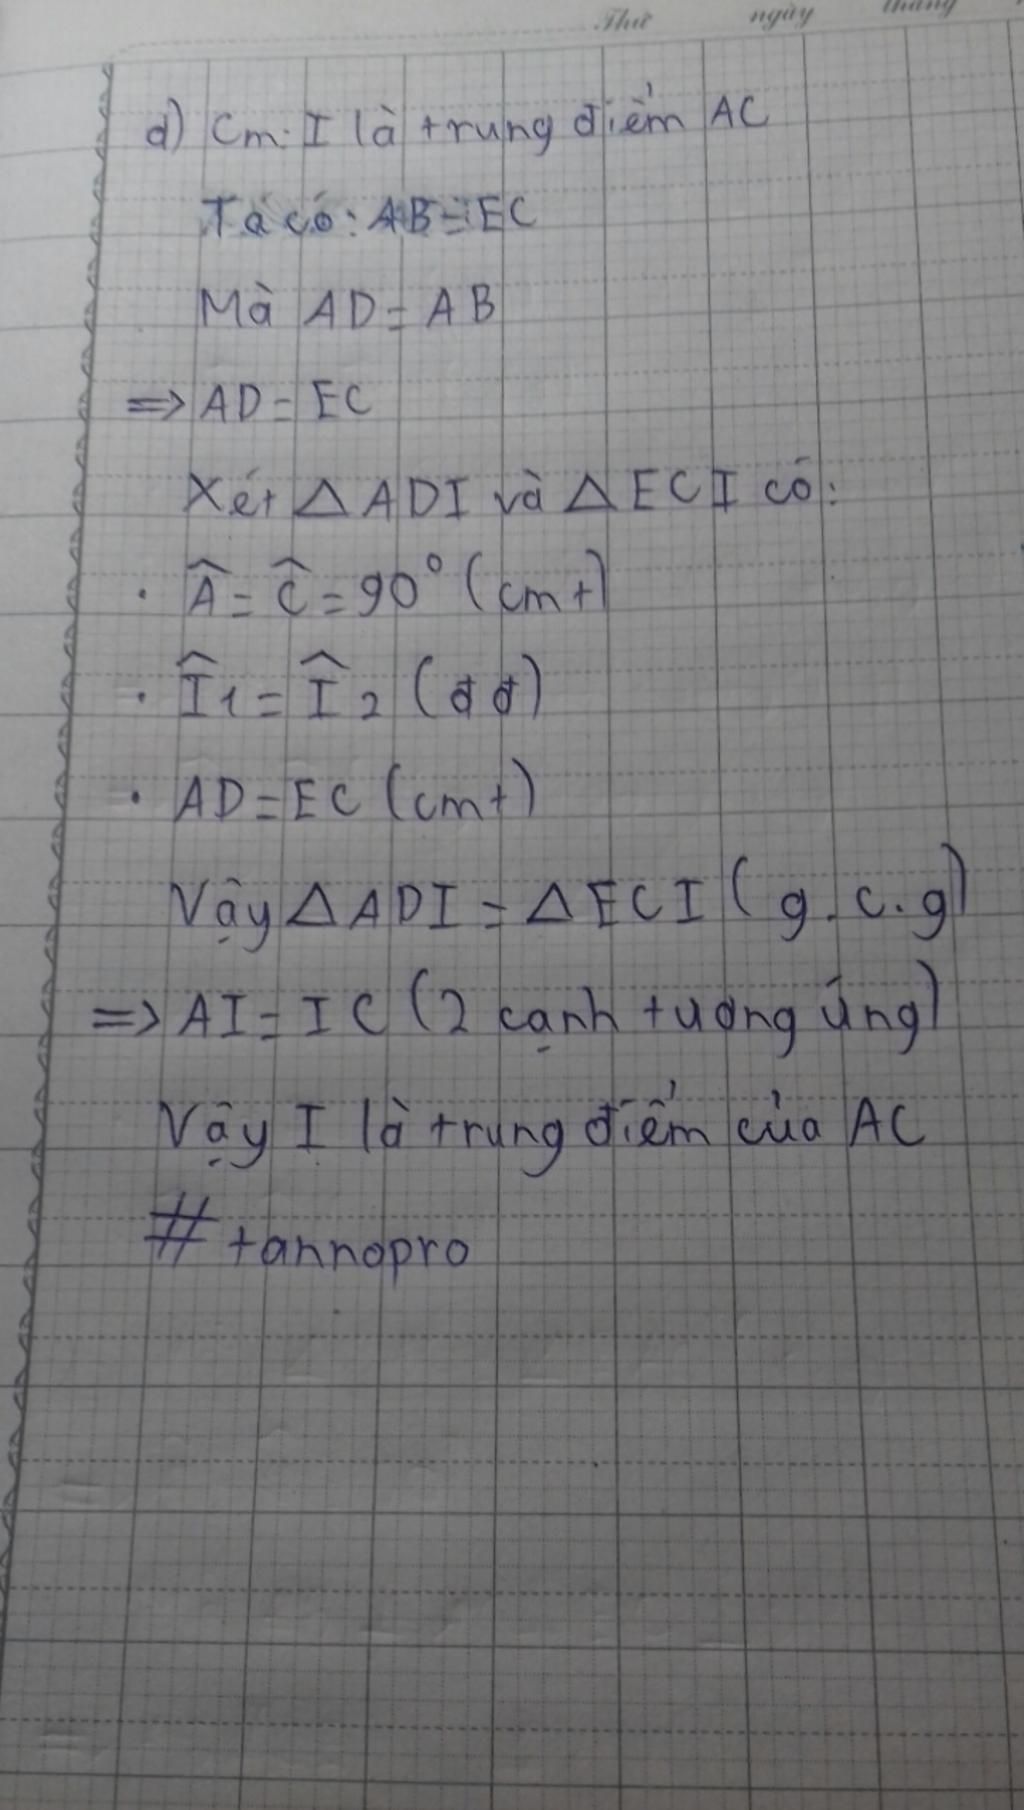 Thứ ngày tháng
d) Cm: I là trung điểm AC
Ta có: AB = EC
Mà AD = AB
=> AD = EC
Xét △ADI và △ECI có:
· Â = Ĉ = 90° (cmt)
· Î1 = Î2 (đđ)
· AD = EC (cmt)
Vậy △ADI = △ECI (g.c.g)
=> AI = IC (2 cạnh tương ứng)
Vậy I là trung điểm của AC
# tannopro